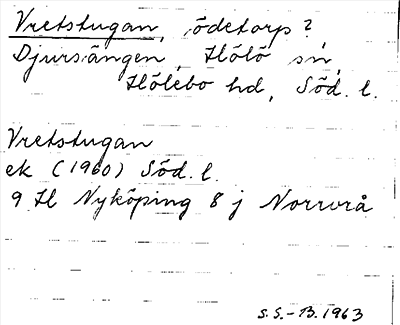 Vretstugan, ödetorp?,
Djursängen, Hölö sn,
Hölebo hd, Söd. l.
Vretstugan
ek (1960) Söd. l.
9 H Nyköping 8 j Norrvrå
S.S.-B. 1963